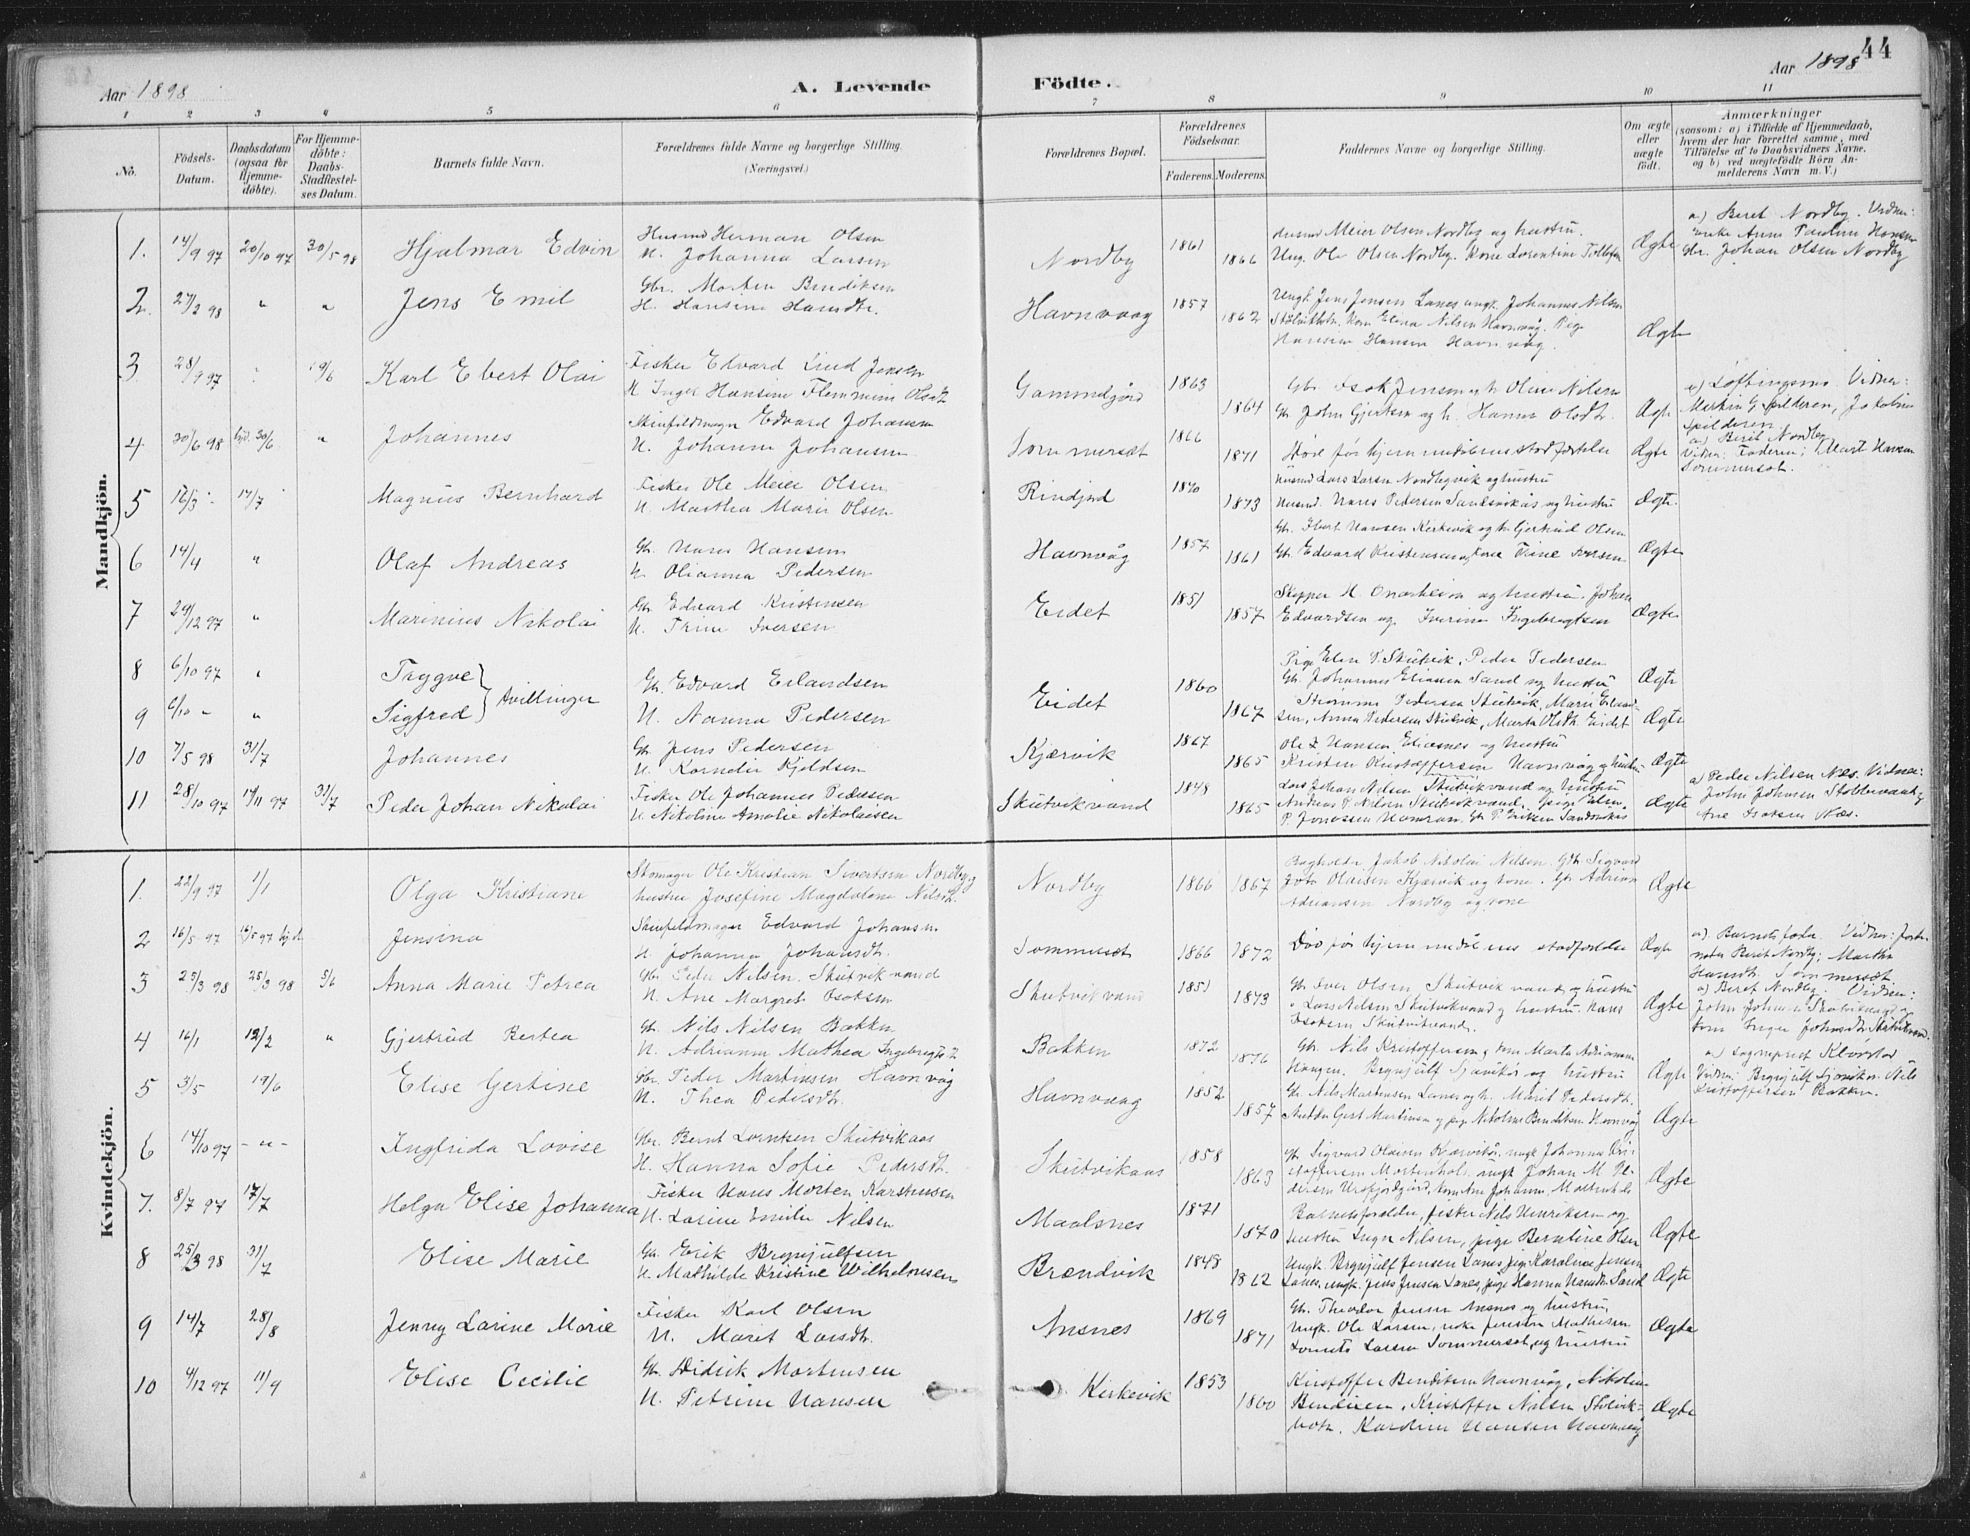 44
Aar 1898
A. Levende Födte.
Aar 1898
1 2 3 4 5 6 7 8 9 10 11
No.
Födsels-Datum.
Daabsdatum (ogsaa för Hjemme-döbte).
For Hjemme-döbte: Daabs-Stadfæstel-ses Datum.
Barnets fulde Navn.
Forældrenes fulde Navne og borgerlige Stilling. (Næringsvei.)
Forældrenes Bopæl.
Forældrenes Födselsaar.
Faderens. Moderens.
Faddernes Navne og borgerlige Stilling.
Om ægte eller uægte födt.
Anmærkninger (saasom: a) i Tilfælde af Hjemmedaab, hvem der har forrettet samme, med Tilföielse af to Daabsvidners Navne, og b) ved uægtefödte Börn An-melderens Navn m. V.)
Mandkjön.
1. 14/9 97 20/10 97 30/5 98 Hjalmar Edvin Husmd Herman Olsen
H. Johanna Larsen Nordby 1861 1866 Husmd Meier Olsen Nordby og hustru.
Ung. Ole Olsen Nordby. Kone Lorentine Tollefsen Ægte a) Beret Nordby. Vidner:
enke Anne Pauline Hansen
Gbr. Johan Olsen Nordby
2. 27/2 98 " " Jens Emil Gbr. Morten Bendiksen
H. Hansine Hansdtr. Havnvaag 1857 1862 Ungk. Jens Jensen Lanes ungk. Johannes Nilsen
Kone Elina Nilsen Havnvåg. Pige
Hansine Hansen Havnvåg. Ægte
3 28/9 97 " 19/6 Karl Ebert Olai Fisker Edvard Lind Jensen
H. Inger Hansine Flemmine Olsd. 1863 1864 Gbr. Isak Jensen og h. Oline Nilsen
Gbr. John Gjertsen og h. Hanna Olsdtr. Ægte Vidner:
Martin G. Spilderen, Jakobine
Spilderen
4 30/6 98 hjd. 30/6 " Johannes Skinfeldmager Edvard Johansen
H. Johanna Johansen Sommerset 1866 1871 Död för hjemmedåbens stadfæstelse Ægte a) Berit Nordby
Vidner: Faderen; Marit Hansen
Sommerset.
5 16/3 - 17/7 Magnus Bernhard Fisker Ole Meier Olsen
H. Marthea Marie Olsen Rindjord 1870 1873 Husmd Lars Larsen Nordbyvik og hustru
Husmd. Hans Pedersen Sandsvikås og hustru Ægte.
6 14/4 " Olaf Andreas Gb. Hans Hansen
H. Olianna Pedersen Havnvåg 1857 1861 Gb. Ebert Hansen Kerkevik og h. Gjertrud Olsen
Gb. Edvard Kristensen og kone Trine Iversen Ægte
7 29/12 97 " Marinius Nikolai Gbr. Edvard Kristensen
H. Trine Iversen Eidet 1851 1857 Skipper H. Onarheim og hustru. Johan
Edvardsen og Iverine Ingebregtsen Ægte
8 6/10 97 " Tryggve
9 6/10 - " Sigfred } tvillinger Gb. Edvard Erlandsen
H. Nanna Pedersen Eidet 1860 1867 Pige Elen P. Skutvik. Peder Pedersen
Gb. Johannes Eliassen Sand og hustru Ægte
Pedersen Skutvik, Marie Erland-
sen, Anna Pedersen Skutvik, Marta Olsdtr. Eidet Ægte
10 7/5 98 31/7 Johannes Gb. Jens Pedersen
H. Kornelie Kjeldsen Kjærvik 1867 1865 Ole Z. Hansen Eliasnes og hustru
Kristen Kristoffersen Havnvåg og hustru Ægte
11 28/10 97 14/11 97 31/7 Peder Johan Nikolai Fisker Ole Johannes Pedersen
H. Nikoline Amalie Nikolaisen Skutvikvand 1848 1865 Lars Johan Nilsen Skutvikvand og hustru
Andreas P. Nilsen Skutvikvand. pige Elen
P. Jonassen Hamran. Gb. P. Eriksen Sandsvikås Ægte a) Peder Nilsen Næs. Vidner:
John Johnsen
Ane Isaksen Næs.
Kvindekjön.
1. 22/9 97 1/1 Olga Kristiane Skomager Ole Kristian Sivertsen Nordby og
hustru Josefine Magdalena Nilsd. Nordby 1866 1867 Bogholder Jakob Nikolai Nilsen. Gbr. Sigvard
Olaisen Kjærvik og kone. Gbr. Adrian
Adriansen Nordby og kone Ægte
2 16/5 97 16/5 97 hjd. Jensina Skinfeldmager Edvard Johansen
H. Johanna Johansdt. Sommerset 1866 1872 Död för hjemmedåbens stadfæstelse Ægte a) Barnets fader. Vidner: Jorde-
moder Beret Nordby; Martha
Hansdtr. Sommerset
3 25/3 98 25/3 98 5/6 Anna Marie Petrea Gbr. Peder Nilsen. Skutvikvand
H. Ane Margret Isaksen Skutvikvand 1851 1873 Gb. Iver Olsen Skutvikvand og hustru
" Lars Nilsen Skutvikvand og hustru. Hans
Isaksen Skutvikvand. Ægte a) Beret Nordby. Vidner:
John Johnsen Skutvikvand og
kone Inger Johnsdtr Skutvikvand.
4 16/1 12/2 " Gjertrud Bertea Gb. Nils Nilsen Bakken
H. Adriann Mathea Ingebregtsd. Bakken 1872 1876 Gb. Nils Kristoffersen og kone Marta Adrianna
Haugen. Brynjulf Sjåvikås og hustru Ægte a) Sogneprest Kloster
Vidner: Brynjulf Sjåvikås. Nils
Kristoffersen Bakken.
5 3/5 19/6 Elise Gertine Gbr. Peder Martinsen Havnvåg
H. Thea Pedersdtr. Havnvaag 1852 1857 Gb. Nils Martinsen Lanes og h. Marit Pedersdtr.
Gert Martinsen og pige Nikoline Bendiksen Havnvåg Ægte
6 14/10 97 -"- Ingfrida Lovise Gbr. Bernt Lorntsen Skutvikaas
H. Hanna Sofie Pedersdt. Skutvikaas 1858 1863 Gb. Sigvard Olaisen Kjærvikås, ungk Johannes Kri-
stoffersen Mortenhals, ungk Johan M. Pe-
dersen Ursfjordgård, kone Ane Johanne, Mortenhals Ægte
7. 8/7 97 17/7 Helga Elise Johanna Fisker Hans Morten Karstensen
H. Larine Emilie Nilsen Maalsnes 1871 1870 Barnets forældre, fisker Nils Henriksen og
hustru Inger Nilsen, pige Berntine Olsen Ægte
8 25/3 98 31/7 Elise Marie Gb. Erik Brynjulfsen
H. Mathilde Kristine Wilhelmsen Brændvik 1848 1862 Ungk. Brynjulf Jensen Lanes, pige Karoline Jensen
Lanes, ungk. Jens Jensen Lanes, pige Hanna Hansdtr. Sand Ægte
9 14/7 28/8 Jenny Larine Marie Fisker Karl Olsen
H. Marit Larsdtr. Ansnes 1869 1871 Gb. Theodor Jensen Ansnes og hustru,
ungk. Ole Larsen, enke Jensine Mathisen
Lorents Larsen Sommerset, og hustru Ægte
10 4/12 97 11/9 Elise Cecilie Gb. Didrik Mortensen
H. Petrine Hansen Kirkevik 1853 1860 Kristoffer Bendiksen Havnvåg, Nikoline
Bendiksen, Kristoffer Nilsen Stolvik-
botn. Karoline Hansen Havnvåg Ægte